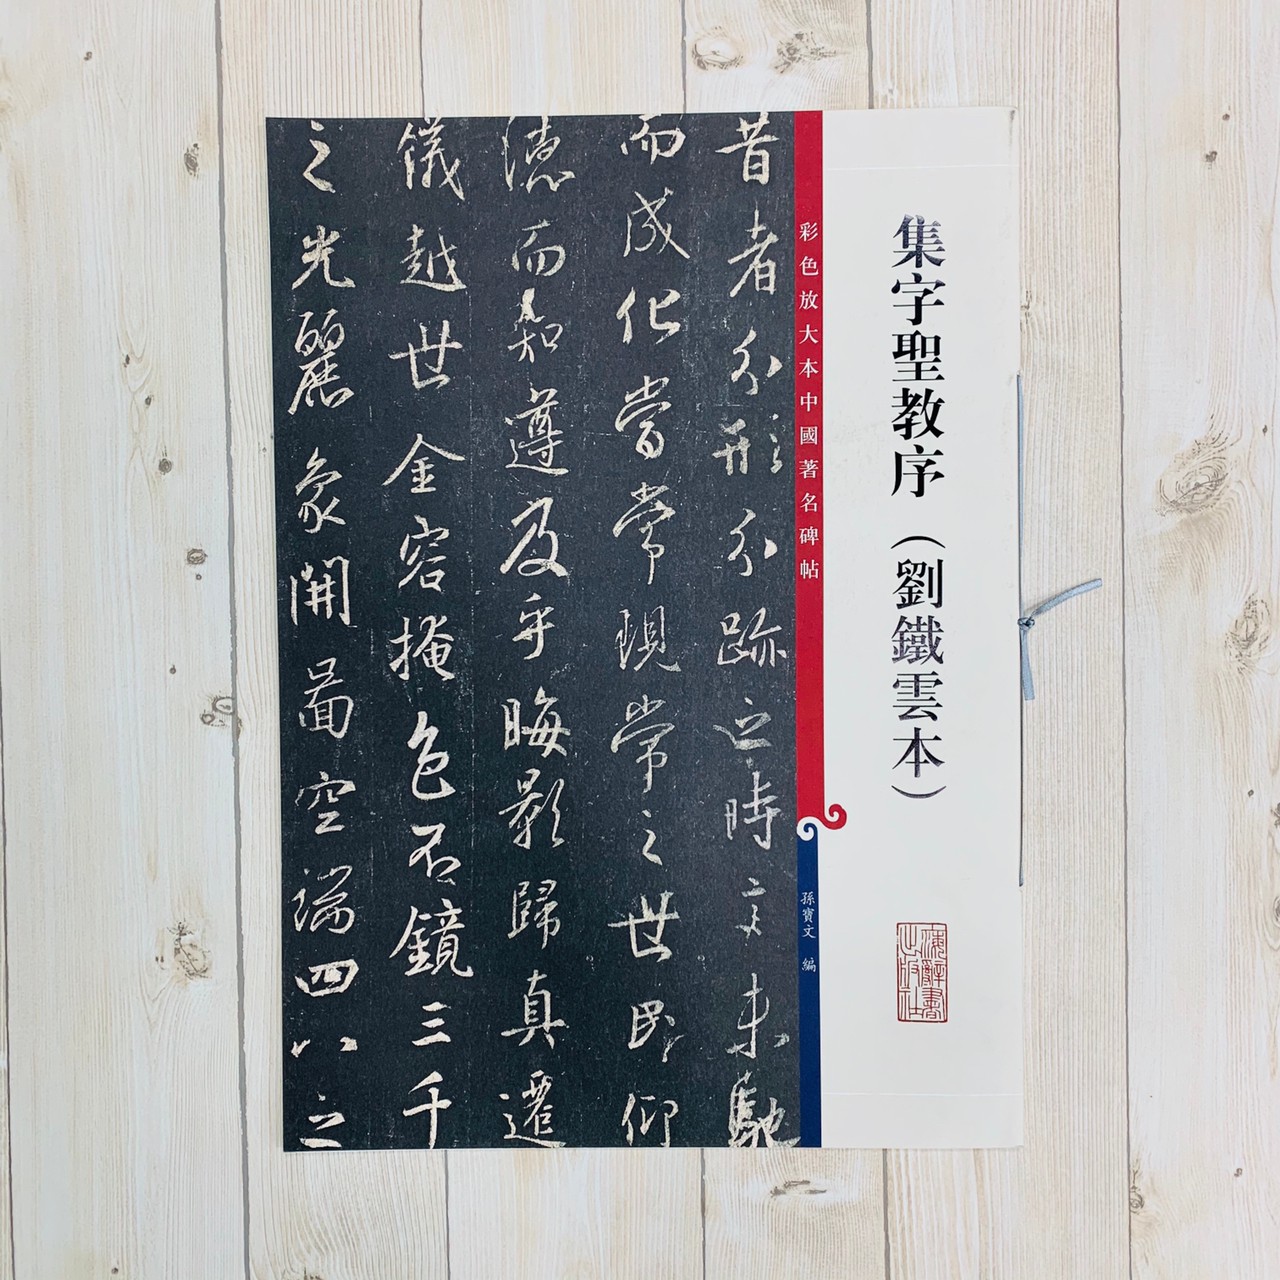 集字聖教序（劉鐵雲本）
上海辭書
出版社
彩色放大本中國著名碑帖
孫寶文 編
昔者分形分跡之時言未馳
而成化當常現常之世民仰
德而知遵及乎晦影歸真遷
儀越世金容掩色不鏡三千
之光麗象開圖空端四八之